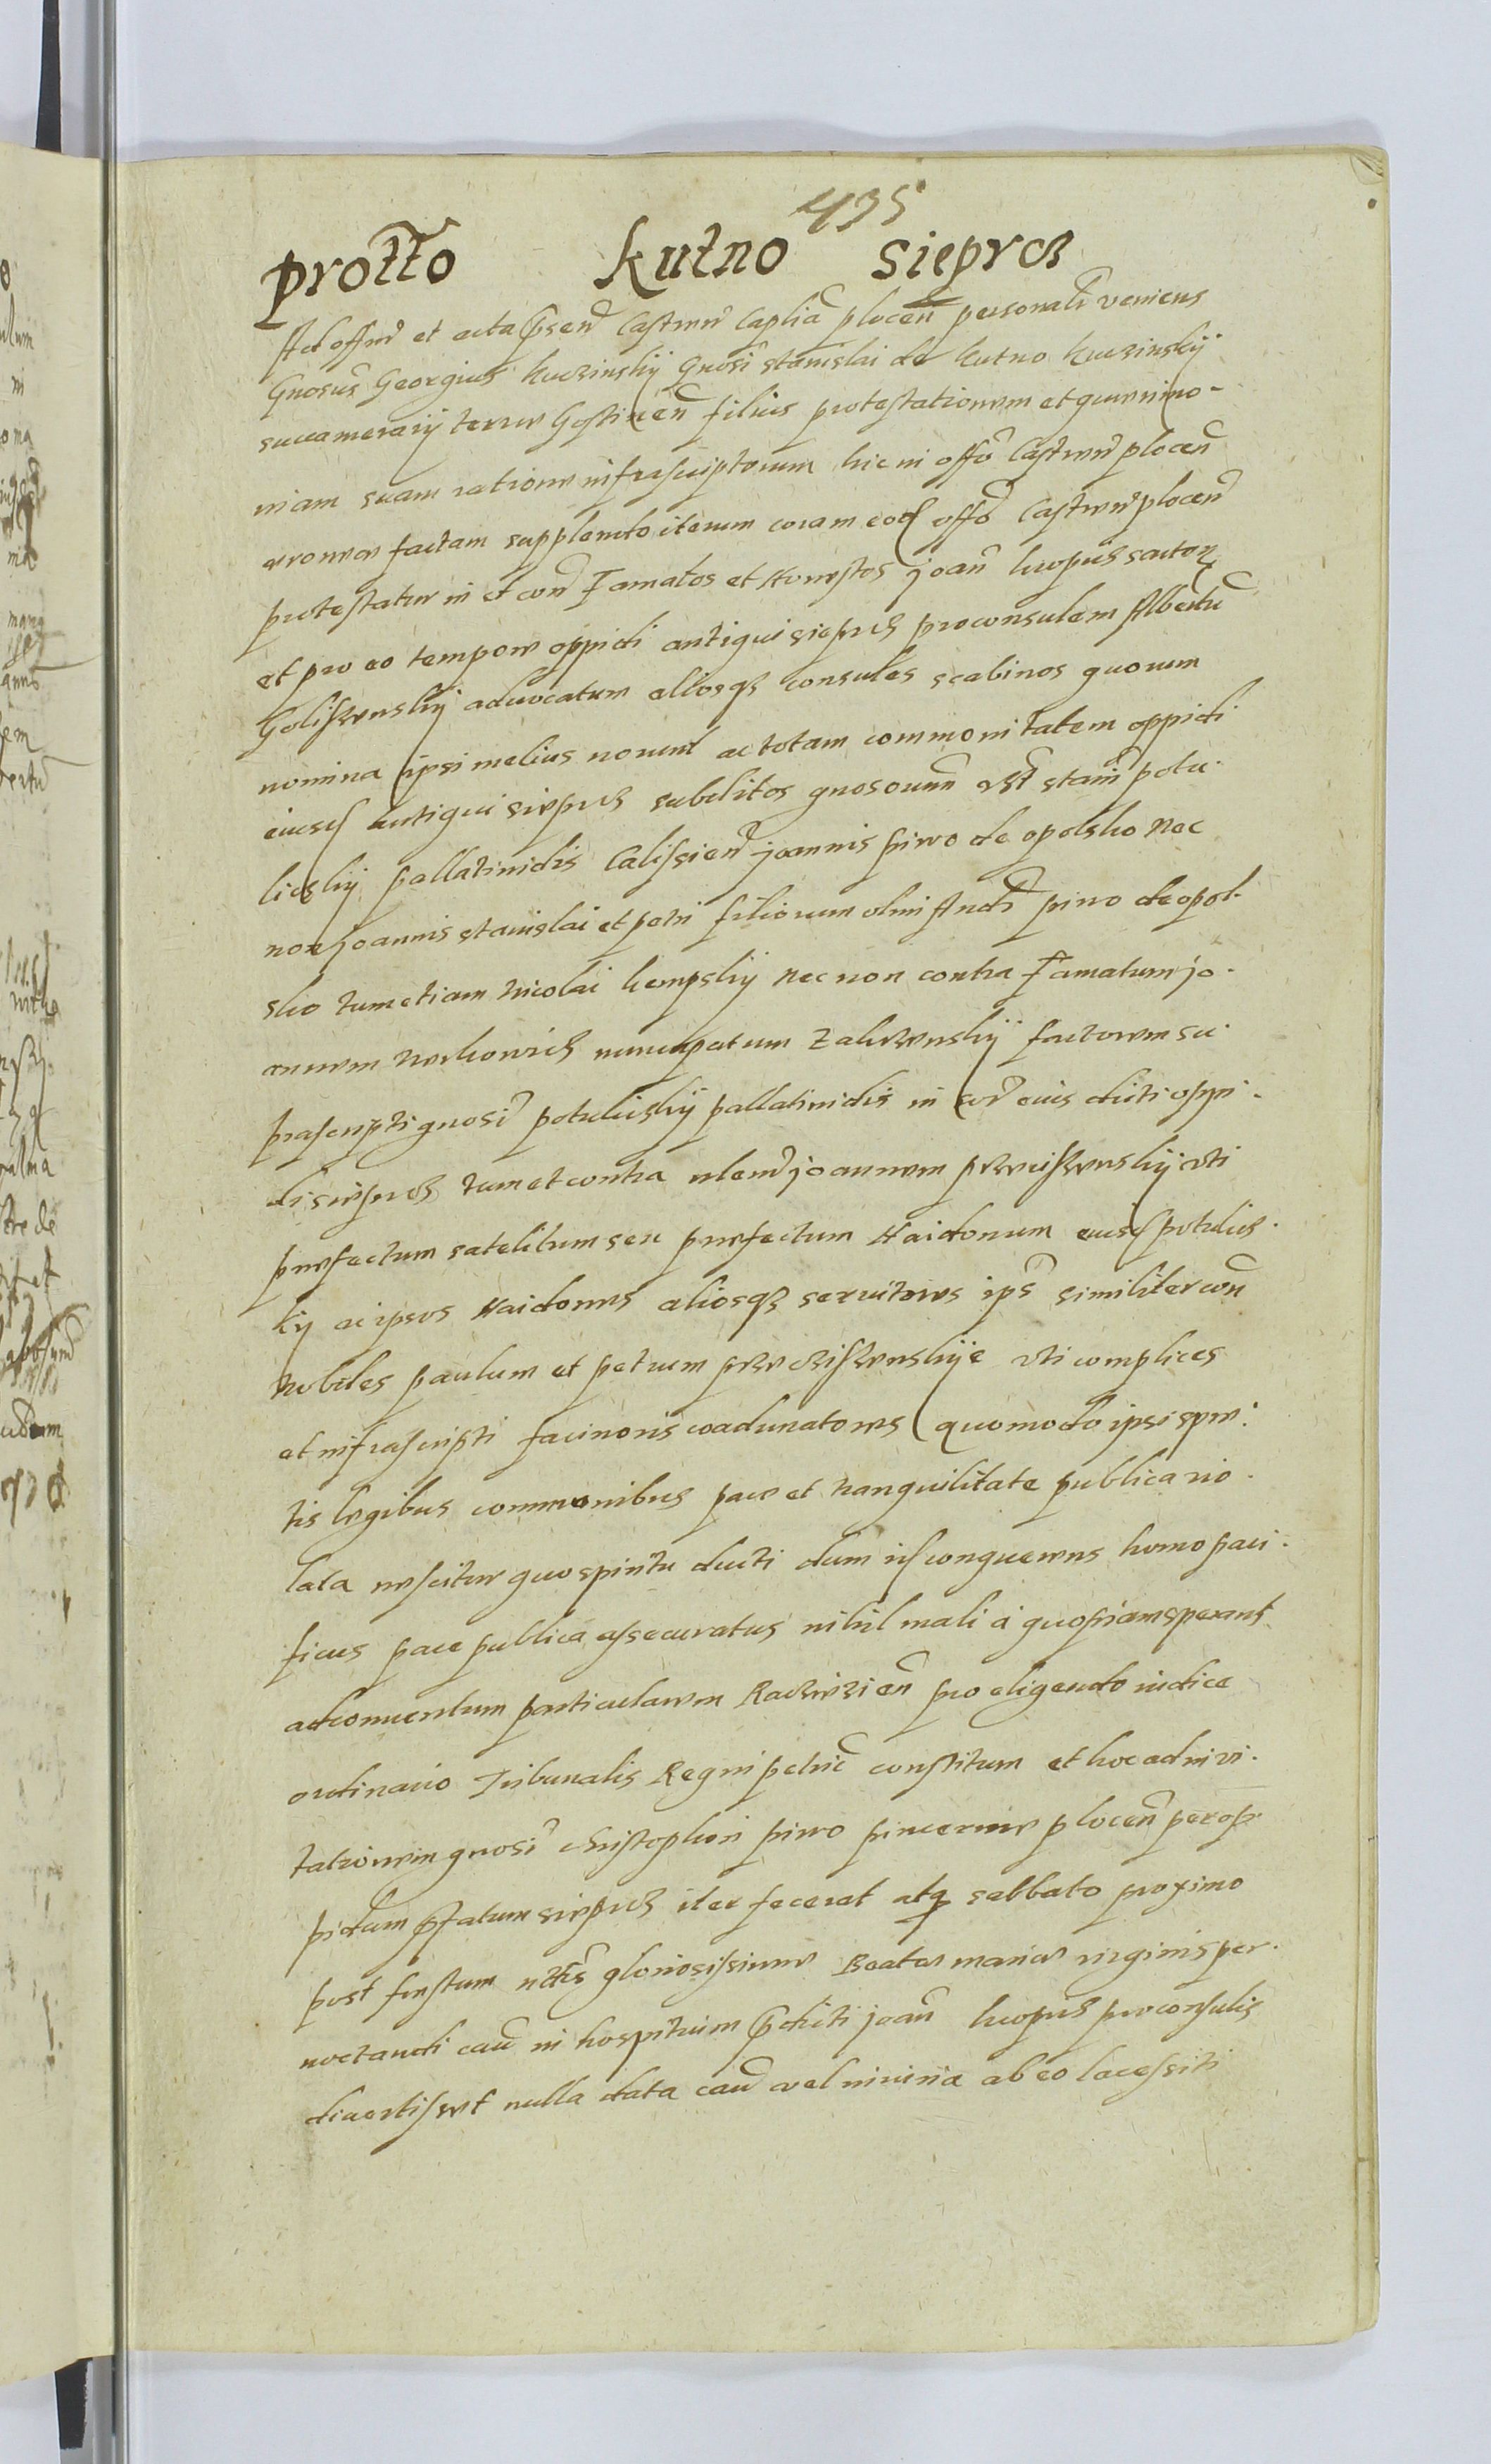 435
Protto Kutno Sieprcz
Ad offm et acta psen Castren Caplia plocen personalr veniens
Gnosus Georgius kuczinskij Gnosi stanislai de kutno kuczinskij
succamerarij terrae Gostinen filius protestationem et quaerimo-
niam suam ratione infrascriptorum hic in offo Castren plocen
erronee factam supplendo iterum coram eod offo Castren plocen
protestatur in et con Famatos et Honestos joan kropius sartor
et pro eo tempore oppidi antiqui sieprcz proconsulem Albertu
Goliszenskij advocatum aliosqz consules scabinos quorum
nomina ipsi melius norunt ac totam communitatem oppidi
eiusd antiqui sieprcz subditos gnosorum stani potu-
licskij pallatinidis Calissien joannis piwo de opolsko nec
non joannis stanislai et petri filiorum olim Andr piwo de opol-
sko tum etiam nicolai kempskij nec non contra Famatum jo-
annem nuncupatum zakrzenskij factorem su-
prascripti gnosi potulicskij pallatinidis in eius dicti oppi-
di sieprcz tum et contra joannem przeciszenskij uti
praefectum satelitum seu praefectum Haidonum eiusd potulics-
kij ac ipsos Haidones aliosqz servitores ips similiter con
Nobiles paulum et petrum przecziszenskije uti complices
et infrascripti facinoris coadunatores quomodo ipsi spre-
tis legibus communibus pace et tranquilitate publica vio-
lata nescitur quo spiritu ducti dum is conquerens homo paci-
ficus pace publica assecuratus nihil mali a quopiam sperans
ad conventum particularem Raczizien pro eligendo iudice
ordinario Tribunalis Regni petric constitum et hoc ad invi-
tationem gnosi christophori piwo pincernae plocen per op-
pidum pfatum sieprcz iter fecerat atq sabbato proximo
post festum nttis gloriosissimae Beatae mariae virginis per-
noctandi cau in hospitium pdicti joan kropicz proconsulis
divertisset nulla data cau vel iniuria ab eo lacessiti